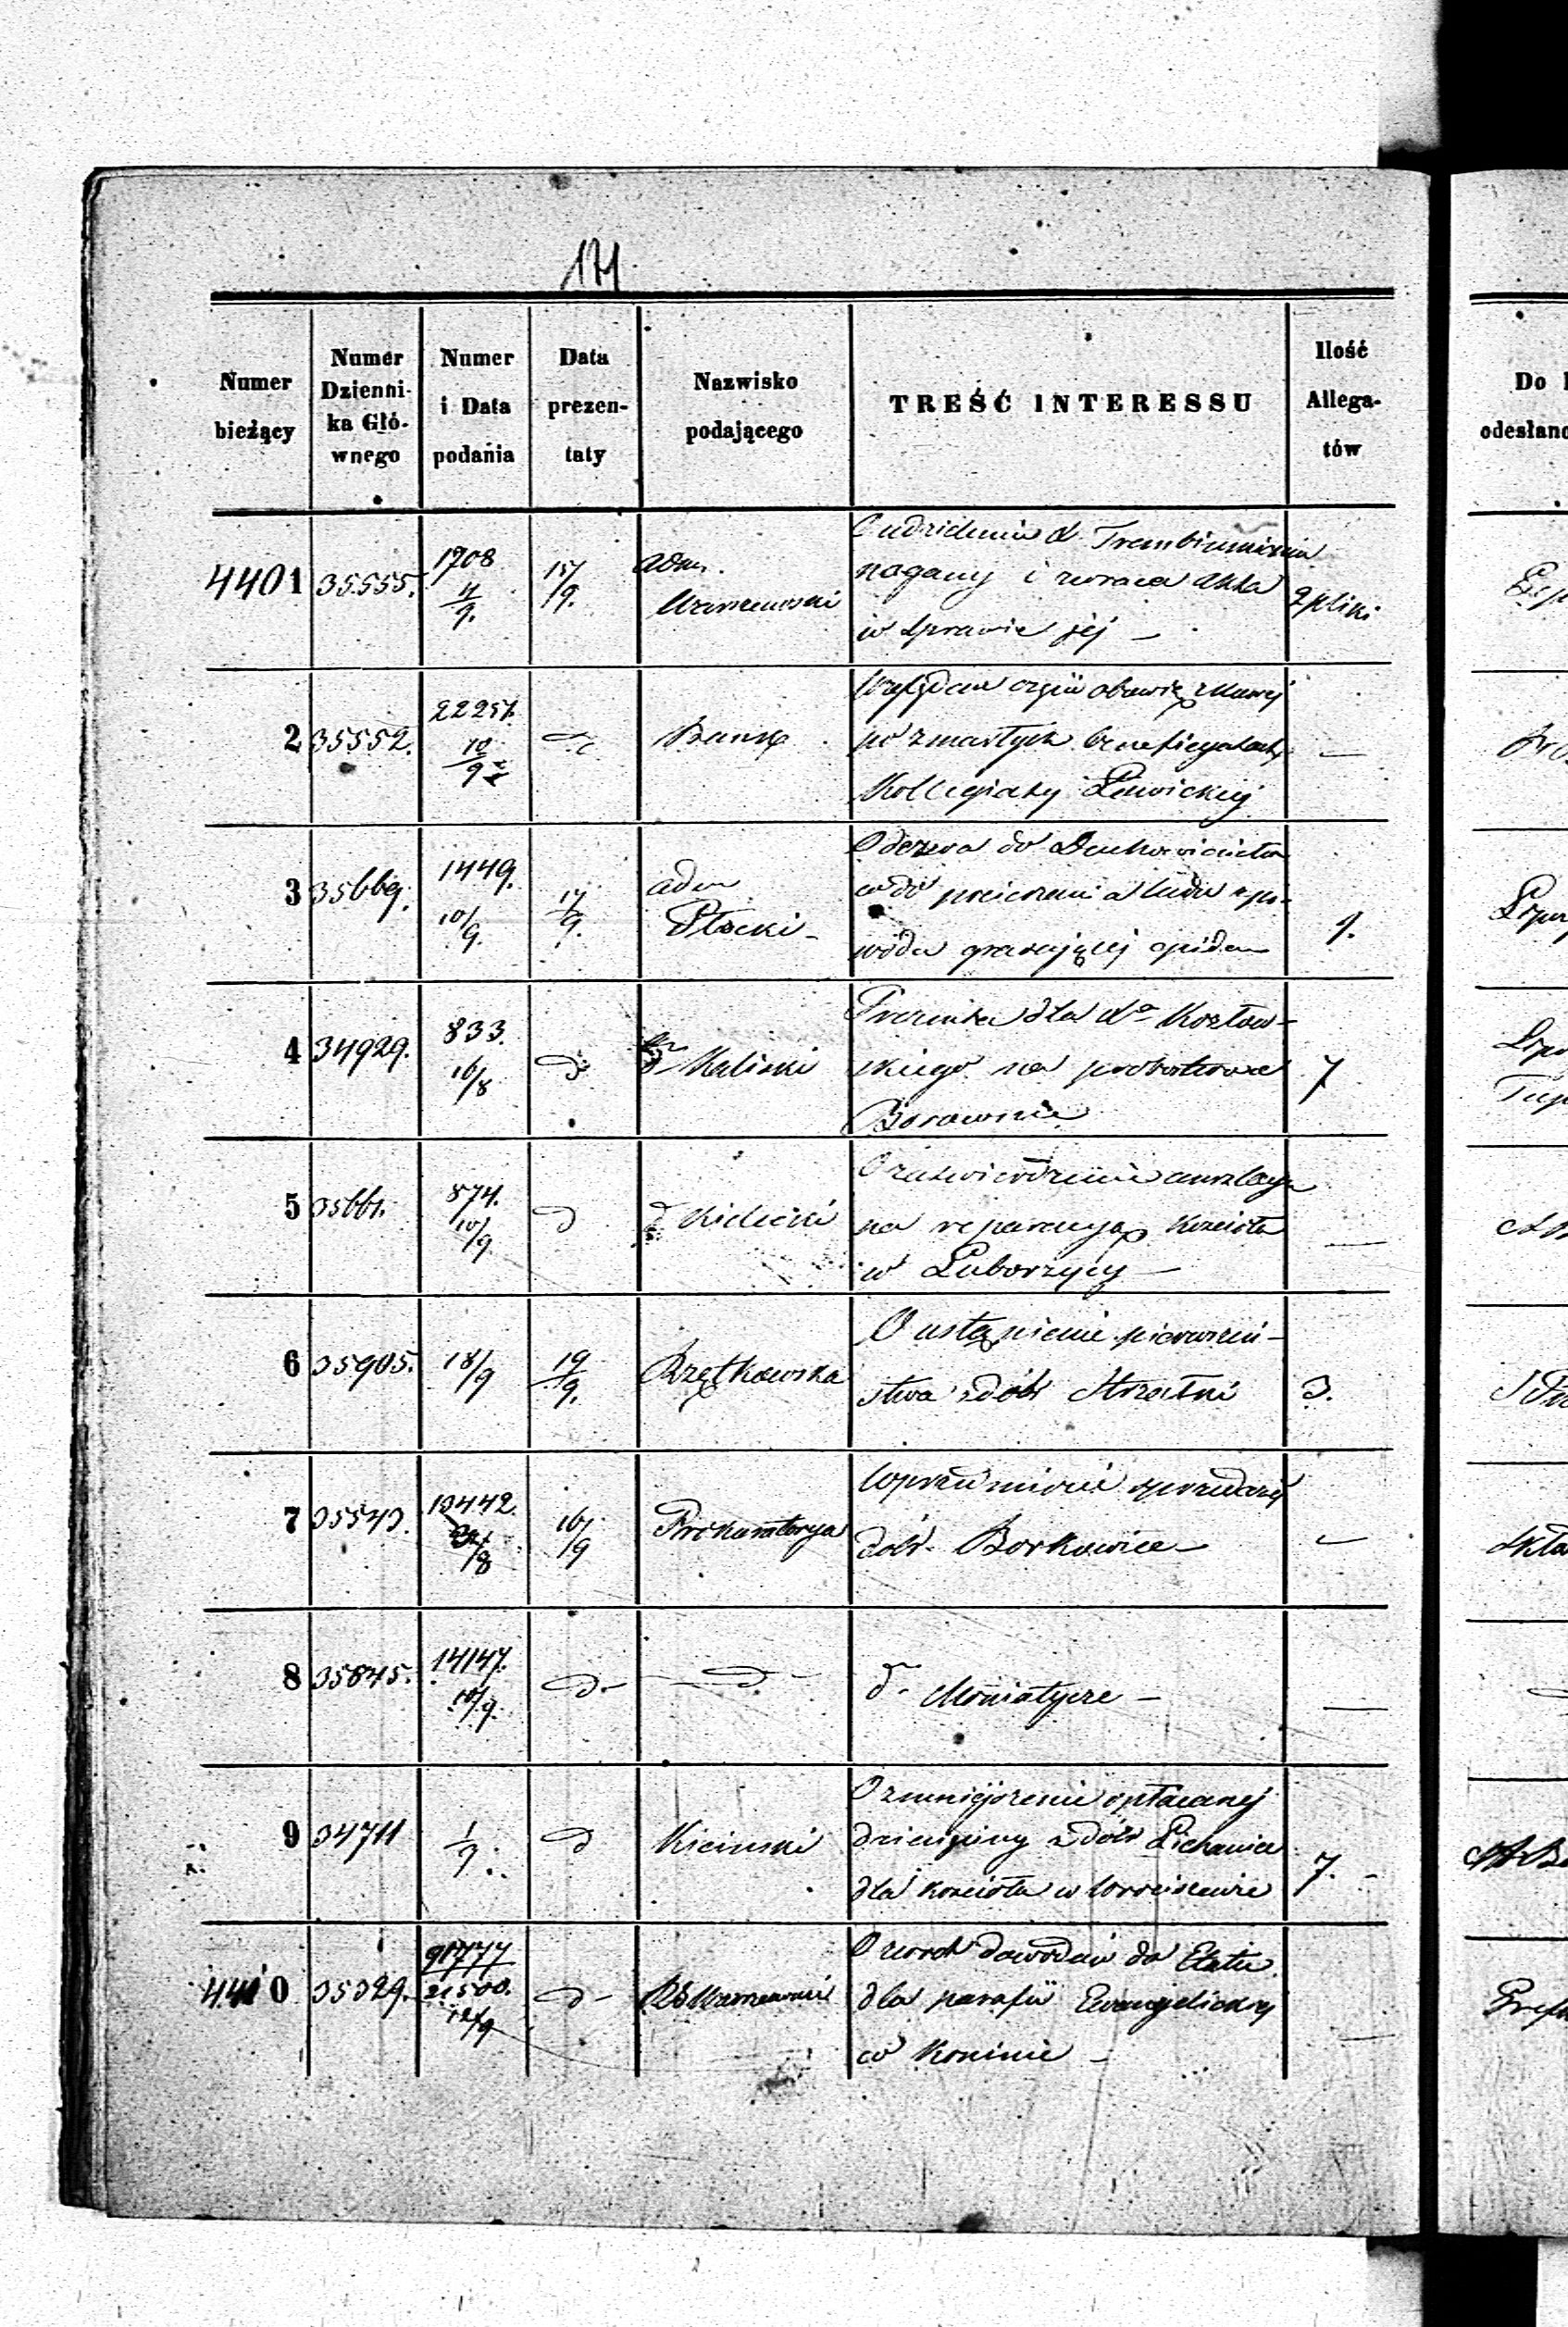 171
Numer bieżący
Numer Dzienni-ka Głó-wnego
Numer i Data podania
Data prezen-taty
Nazwisko podającego
TREŚĆ INTERESSU
Ilość Allega-tów
Do
odesłano
4401 35555. 1708 11/9. 15/9. adm. Warszewski
O udzielenie d.
nagany i zwraca akta
w sprawie jej —
2 pliki
2 35552. 22257. 10/9 Bank
Względem czyli obowiązkowej
po zmarłych beneficyatach
Kollegiaty Łowickiej
—
3 35669. 1449. 10/9. 17/9. adm Płocki —
Odezwa do Duchowieństwa
wodu grasującej epidem
1.
4 34929. 833. 16/8 d Kaliski
Prezenta dla Ks Kozłow-
skiego na probostwo w
Borownie
7
5 35661. 874. 10/9. d d Kielecki
O zatwierdzenie anszlagu
na reparacyą Kościoła
w Luborzycy —
—
6 35905. 18/9 19/9. Rzętkowska
O ustąpienie pierwszeń-
stwa z dóbr Strzałki
3.
7 35543. 13442. /8 16/9 Prokuratorya
W przedmiocie sprzedaży
dóbr Borkowice —
—
8 35845. 14147. 10/9. d. — d —
d. Moniatycze —
—
9 34711 1/9. d Kicinski
O zmniejszenie opłacanej
dziesięciny z dóbr Lichawice
dla kościoła w Wrociszewie
7. -
4410 35329. 91777 21500. 12/9 d - RG Warszawski
O zwrot dowodów do Etatu
dla parafii Ewangelickiej
w Koninie —
—